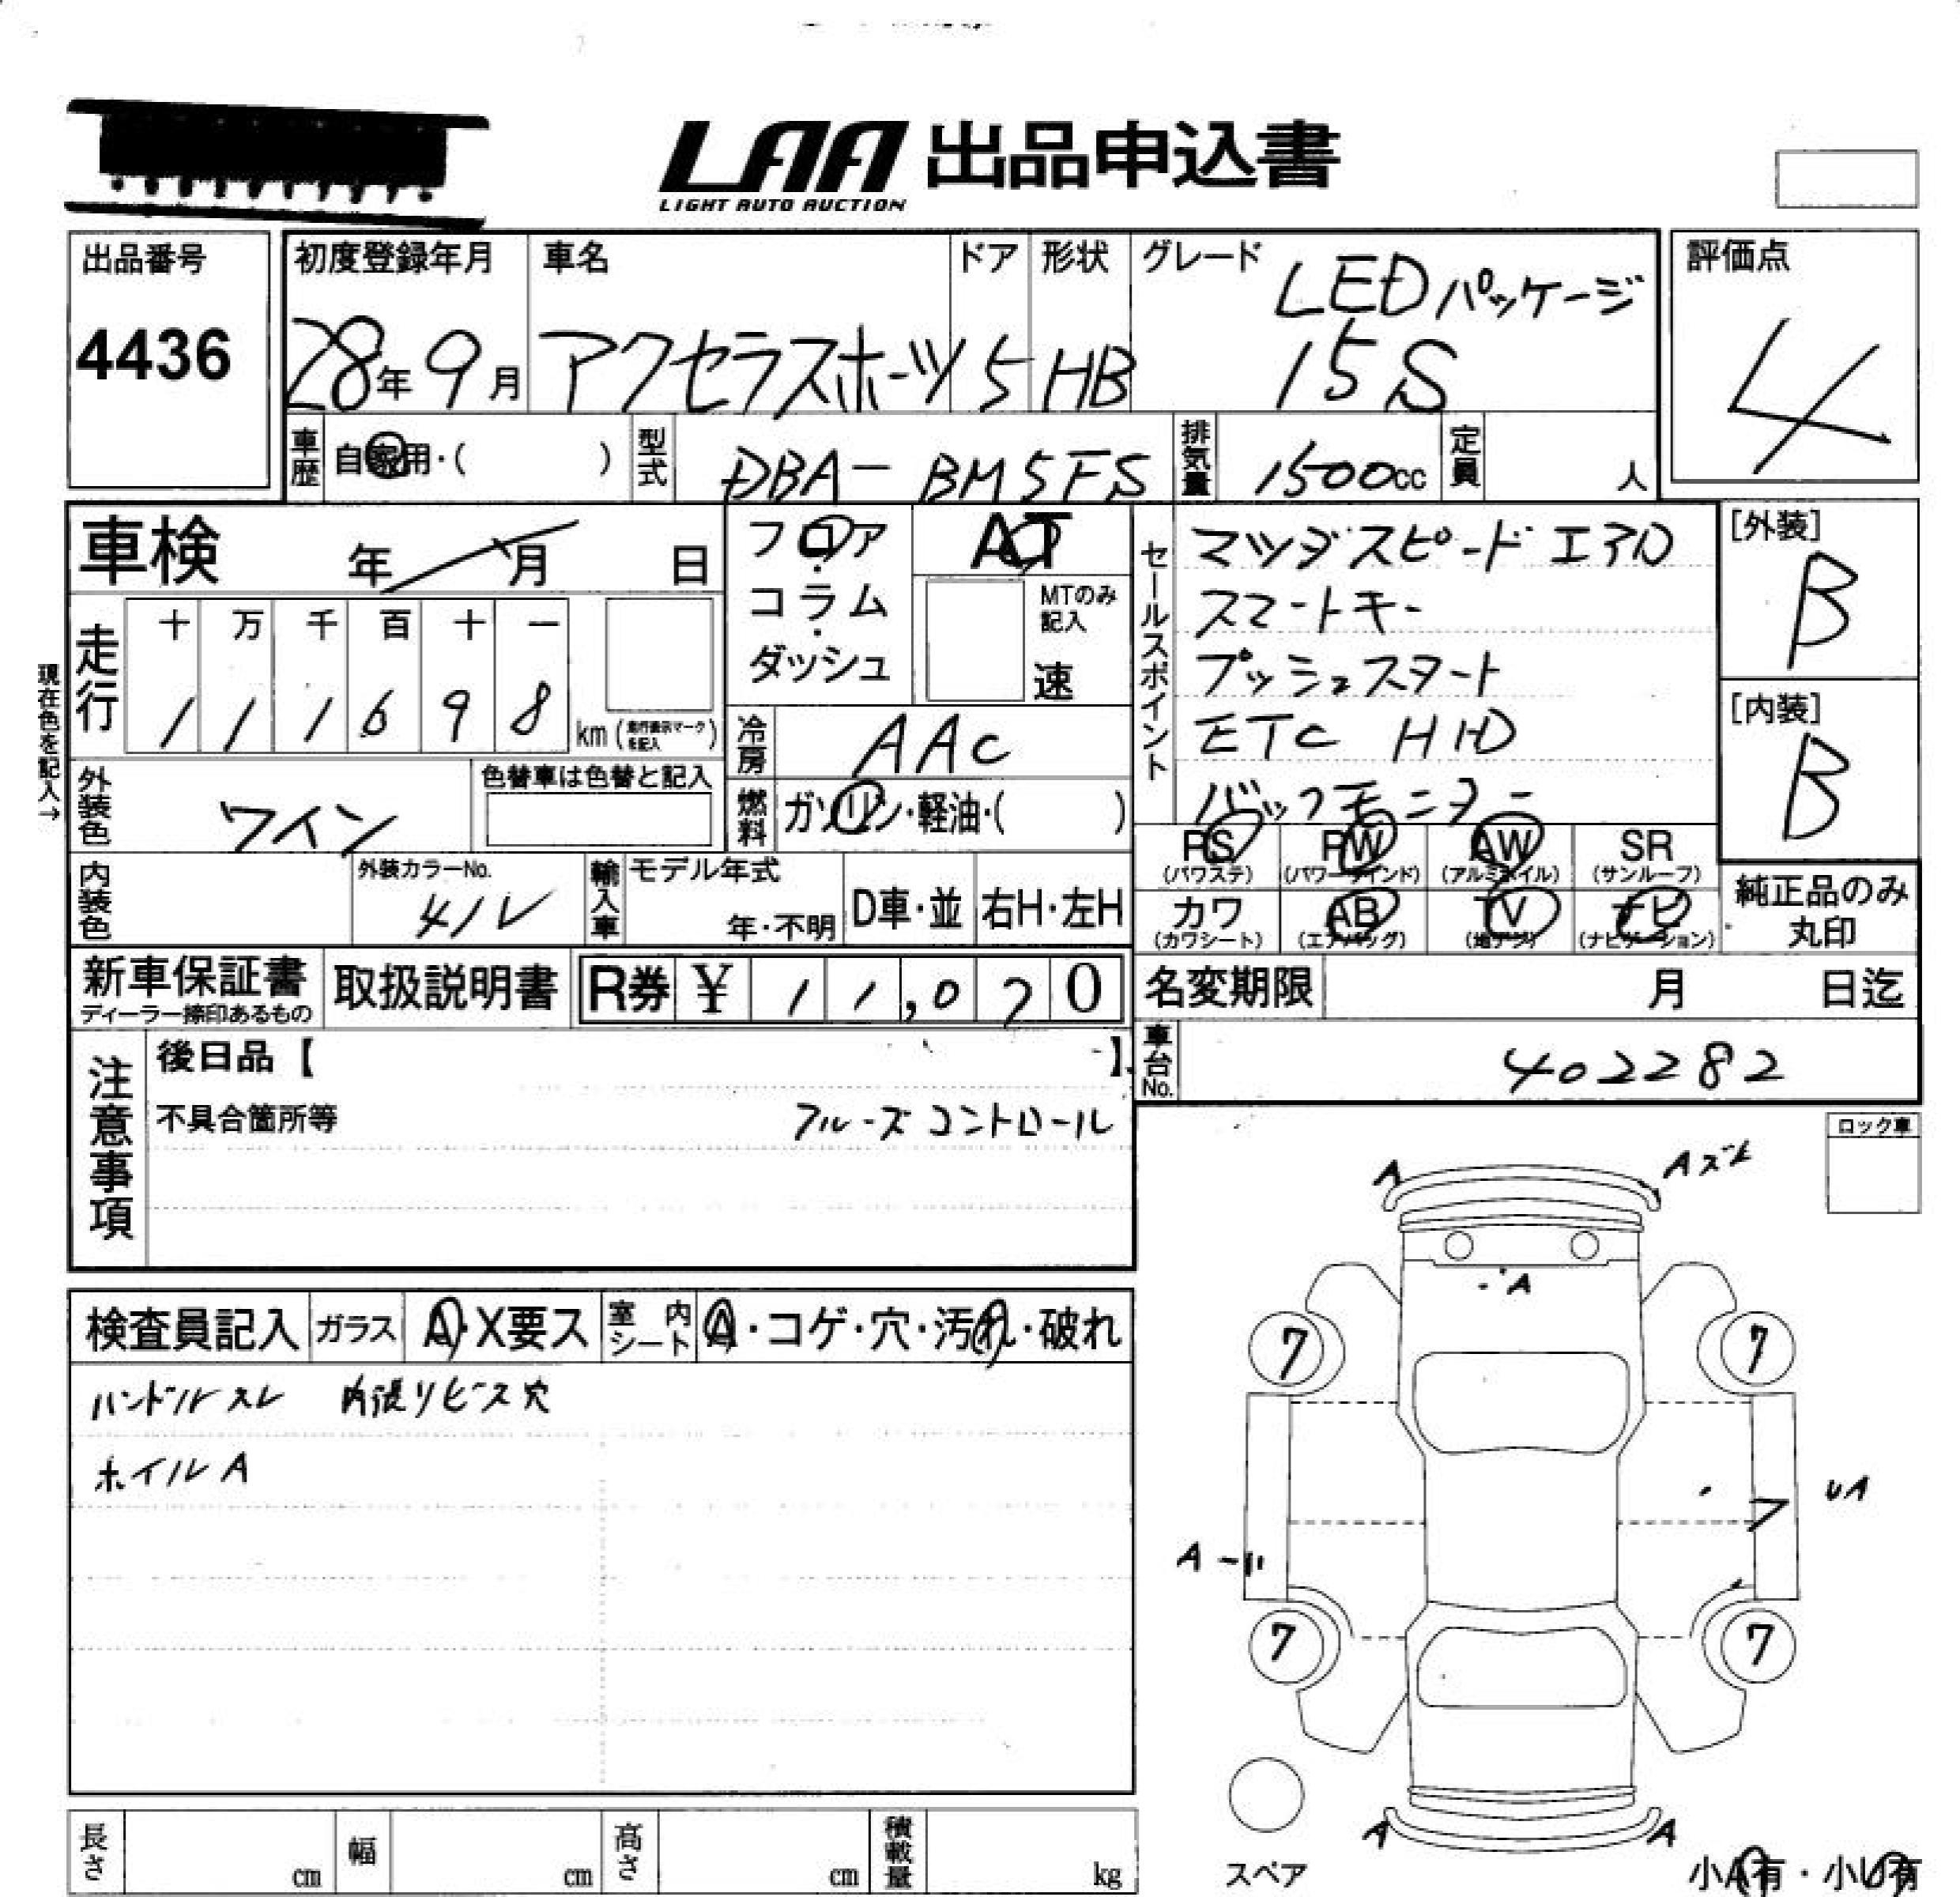 LAA 出品申込書
LIGHT AUTO AUCTION
出品番号
4436
初度登録年月
28年9月
車名
アクセラスポーツ
ドア
5
形状
HB
グレード
LEDパッケージ
15S
評価点
4
車歴
自家用・( )
型式
DBA-BM5FS
排気量
1500cc
定員
人
車検 年 月 日
フロア
・
コラム
・
ダッシュ
AT
MTのみ
記入
速
セールスポイント
マツダスピードエアロ
スマートキー
プッシュスタート
ETC HID
バックモニター
[外装]
B
[内装]
B
現在色を記入→
走行
十 万 千 百 十 一
1 1 1 6 9 8
km (走行表示マークを記入)
冷房
AAC
燃料
ガソリン・軽油・( )
外装色
ワイン
色替車は色替と記入
内装色
外装カラーNo.
41V
輸入車
モデル年式
年・不明
D車・並
右H・左H
PS
(パワステ)
PW
(パワーウインド)
AW
(アルミホイル)
SR
(サンルーフ)
カワ
(カワシート)
AB
(エアバッグ)
TV
(地デジ)
ナビ
(ナビゲーション)
純正品のみ
丸印
新車保証書
ディーラー捺印あるもの
取扱説明書
R券 ¥ 11,070
名変期限
月 日迄
車台No.
402282
注意事項
後日品【 】
不具合箇所等
クルーズコントロール
ロック車
A
Aズレ
A
7
7
UA
A
7
7
A
A
スペア
小A有・小U有
検査員記入
ガラス
A・X要ス
室内シート
A・コゲ・穴・汚れ・破れ
ハンドルスレ 内張リビス穴
ホイルA
長さ
cm
幅
cm
高さ
cm
積載量
kg